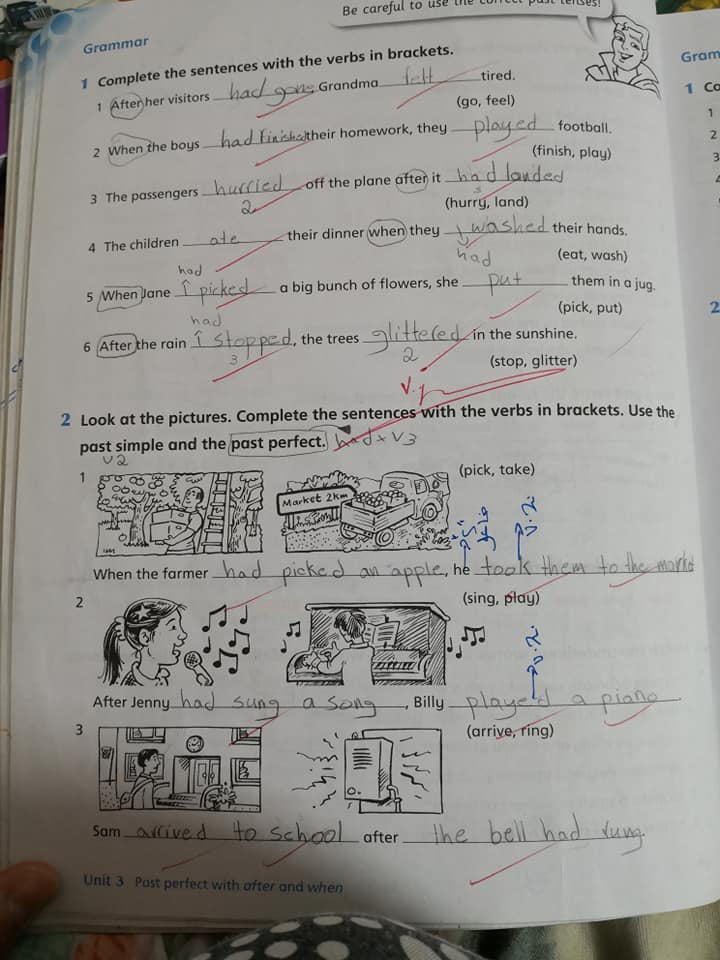 Be careful to use the correct past tenses!
Grammar
Gram
1 Complete the sentences with the verbs in brackets.
1 Co
1 After her visitors had gone, Grandma felt tired.
(go, feel)
1
2 When the boys had finished their homework, they played football.
(finish, play)
2
3 The passengers hurried off the plane after it had landed
2 3
(hurry, land)
3
4 The children ate their dinner when they washed their hands.
had
(eat, wash)
had
5 When Jane picked a big bunch of flowers, she put them in a jug.
(pick, put)
2
had
6 After the rain stopped, the trees glittered in the sunshine.
3 2
(stop, glitter)
V.g
2 Look at the pictures. Complete the sentences with the verbs in brackets. Use the
past simple and the past perfect. had + V3
V2
1
(pick, take)
Market 2km
When the farmer had picked an apple, he took them to the market
2
(sing, play)
After Jenny had sung a song, Billy played a piano.
3
(arrive, ring)
Sam arrived to school after the bell had rung.
Unit 3 Past perfect with after and when